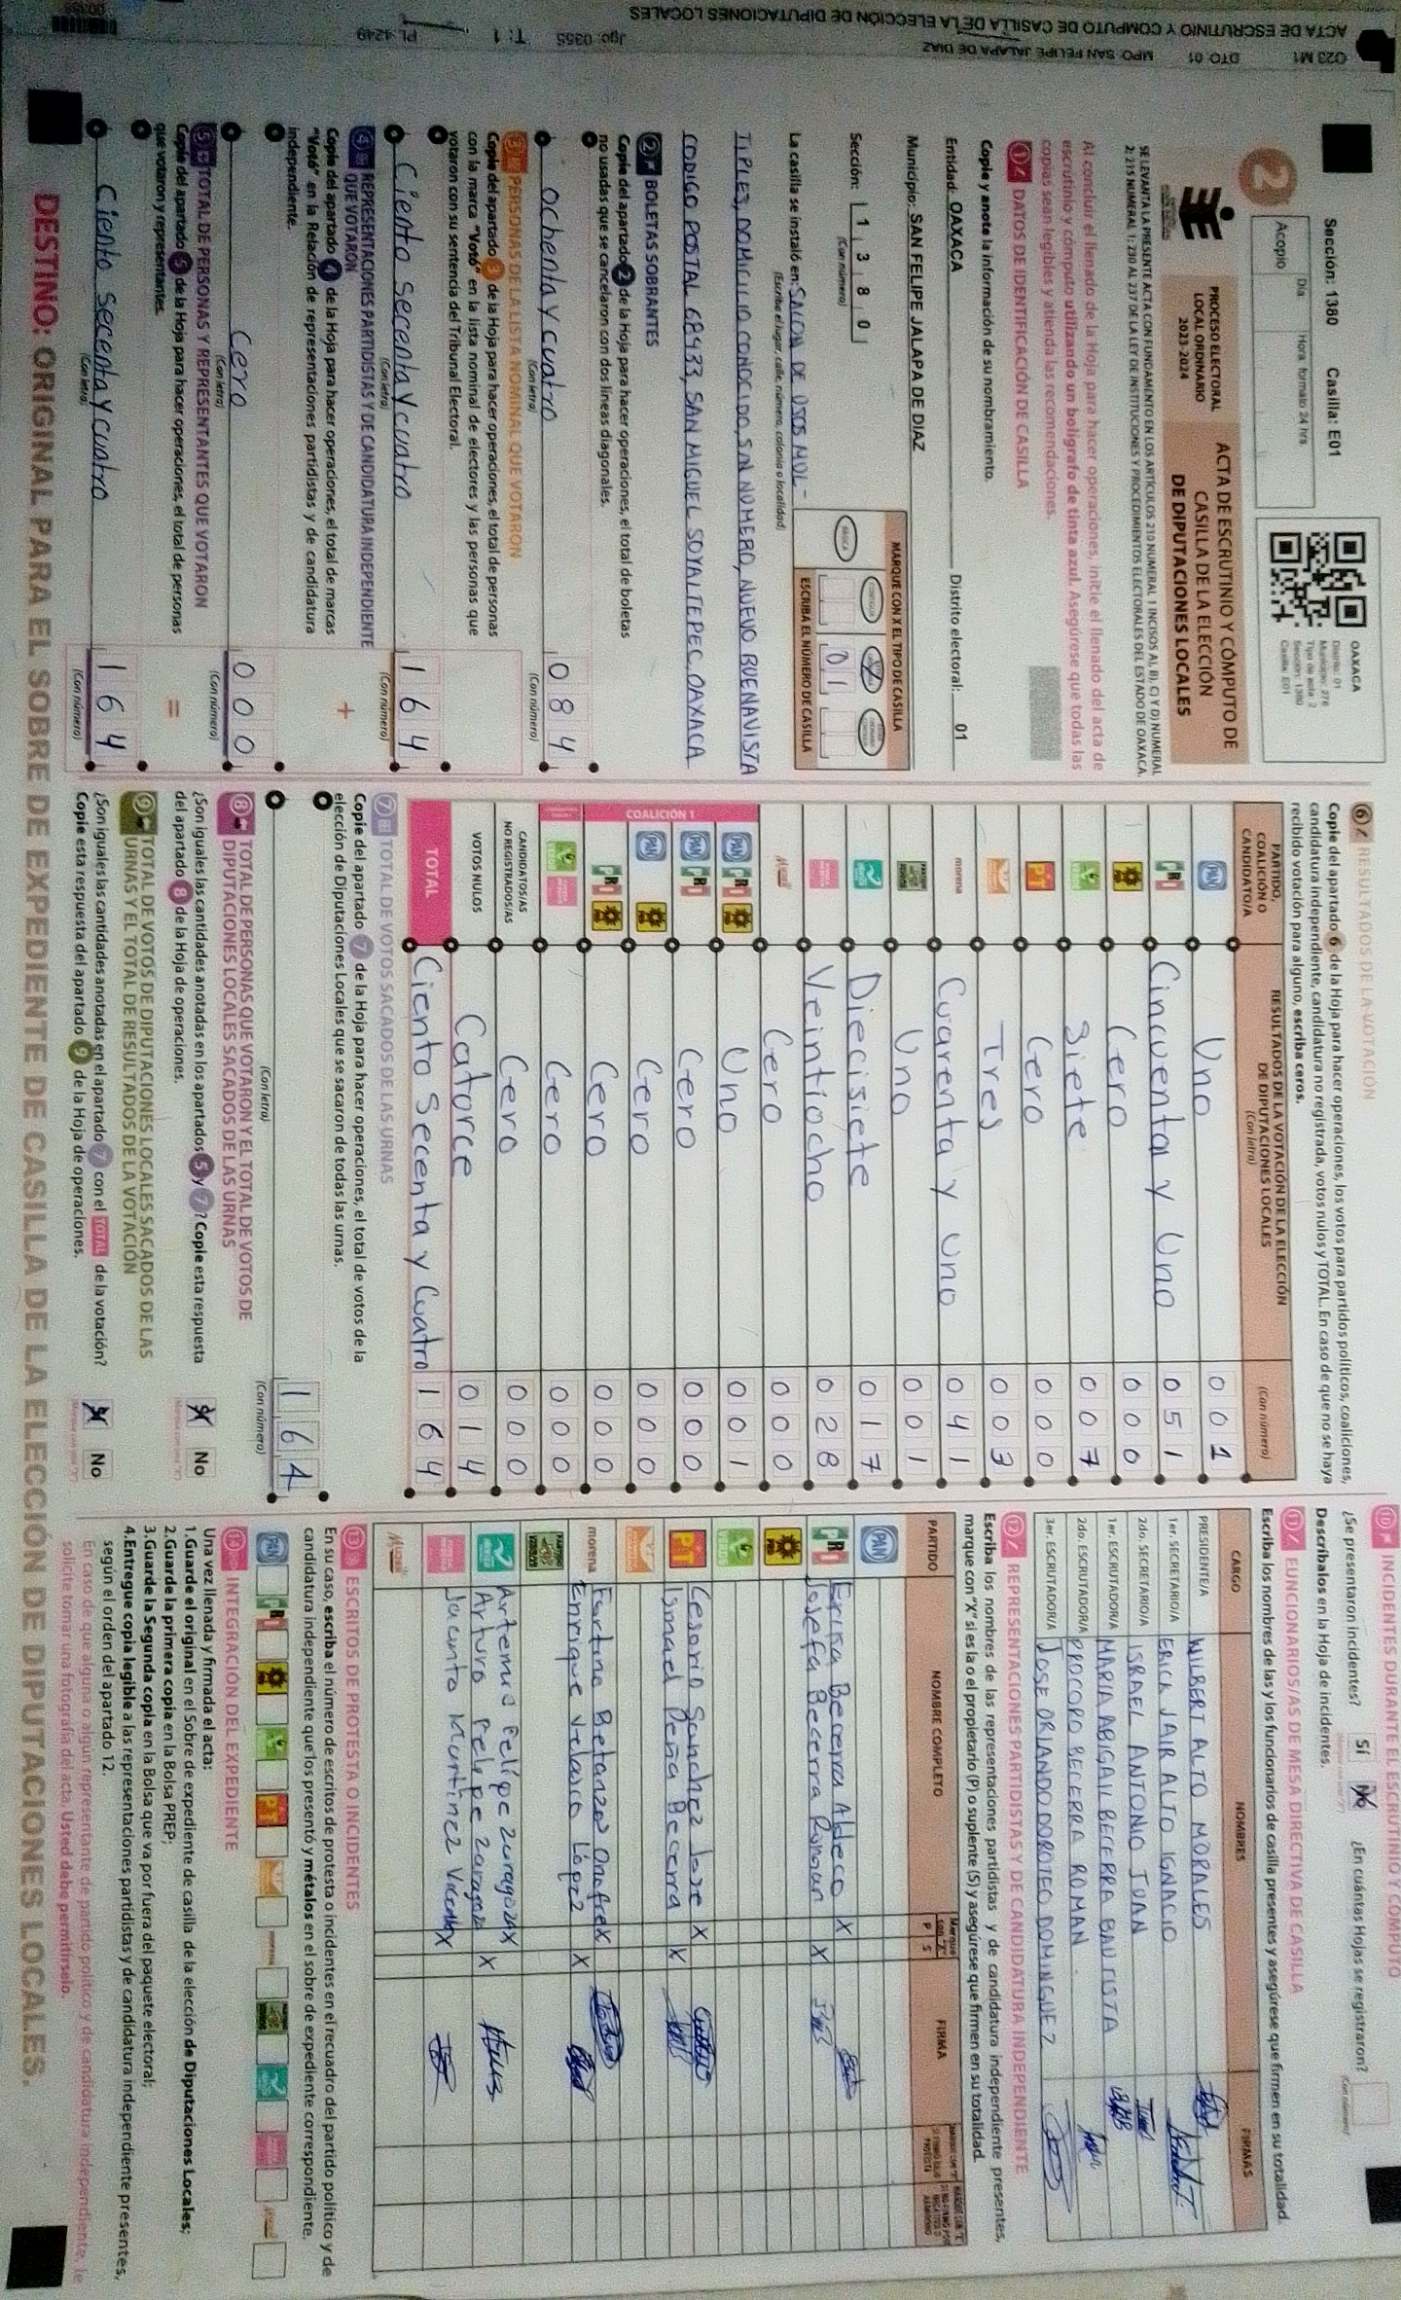 023 M1 DTO 01 MPO SAN FELIPE JALAPA DE DIAZ
ACTA DE ESCRUTINIO Y CÓMPUTO DE CASILLA DE LA ELECCIÓN DE DIPUTACIONES LOCALES
Jgo: 0355 T: 1 PL: 4249
Sección: 1380 Casilla: E01
2
Acopio
Día
Hora formato 24 hrs
OAXACA
Distrito: 01
Municipio: 278
Tipo de acta: 2
Sección: 1380
Casilla: E01
PROCESO ELECTORAL
LOCAL ORDINARIO
2023-2024
ACTA DE ESCRUTINIO Y CÓMPUTO DE
CASILLA DE LA ELECCIÓN
DE DIPUTACIONES LOCALES
SE LEVANTA LA PRESENTE ACTA CON FUNDAMENTO EN LOS ARTÍCULOS 210 NUMERAL 1 INCISOS A), B), C) Y D) NUMERAL
2; 215 NUMERAL 1; 230 AL 237 DE LA LEY DE INSTITUCIONES Y PROCEDIMIENTOS ELECTORALES DEL ESTADO DE OAXACA.
Al concluir el llenado de la Hoja para hacer operaciones, inicie el llenado del acta de
escrutinio y cómputo utilizando un bolígrafo de tinta azul. Asegúrese que todas las
copias sean legibles y atienda las recomendaciones.
1 DATOS DE IDENTIFICACIÓN DE CASILLA
Copie y anote la información de su nombramiento.
Entidad: OAXACA Distrito electoral: 01
Municipio: SAN FELIPE JALAPA DE DIAZ
Sección: 1 3 8 0
(Con número)
MARQUE CON X EL TIPO DE CASILLA
BÁSICA
0 1
ESCRIBA EL NÚMERO DE CASILLA
La casilla se instaló en: SALON DE USOS MUL-
(Escriba el lugar, calle, número, colonia o localidad)
TIPLES, DOMICILIO CONOCIDO, SIN NUMERO, NUEVO BUENAVISTA
CODIGO POSTAL 68433, SAN MIGUEL SOYALTEPEC, OAXACA
2 BOLETAS SOBRANTES
Copie del apartado 2 de la Hoja para hacer operaciones, el total de boletas
no usadas que se cancelaron con dos líneas diagonales.
ochenta y cuatro 0 8 4
(Con letra) (Con número)
3 PERSONAS DE LA LISTA NOMINAL QUE VOTARON
Copie del apartado 3 de la Hoja para hacer operaciones, el total de personas
con la marca "Votó" en la lista nominal de electores y las personas que
votaron con su sentencia del Tribunal Electoral.
Ciento secenta y cuatro 1 6 4
(Con letra) (Con número)
4 REPRESENTACIONES PARTIDISTAS Y DE CANDIDATURA INDEPENDIENTE
QUE VOTARON
Copie del apartado 4 de la Hoja para hacer operaciones, el total de marcas
"Votó" en la Relación de representaciones partidistas y de candidatura
independiente.
+
Cero 0 0 0
(Con letra) (Con número)
5 TOTAL DE PERSONAS Y REPRESENTANTES QUE VOTARON
Copie del apartado 5 de la Hoja para hacer operaciones, el total de personas
que votaron y representantes.
=
Ciento secenta y cuatro 1 6 4
(Con letra) (Con número)
6 RESULTADOS DE LA VOTACIÓN
Copie del apartado 6 de la Hoja para hacer operaciones, los votos para partidos políticos, coaliciones,
candidatura independiente, candidatura no registrada, votos nulos y TOTAL. En caso de que no se haya
recibido votación para alguno, escriba ceros.
PARTIDO,
COALICIÓN O
CANDIDATO/A
RESULTADOS DE LA VOTACIÓN DE LA ELECCIÓN
DE DIPUTACIONES LOCALES
(Con letra)
(Con número)
PAN Uno 0 0 1
PRI Cincuenta y Uno 0 5 1
PRD Cero 0 0 0
VERDE Siete 0 0 7
PT Cero 0 0 0
Tres 0 0 3
morena Cuarenta y Uno 0 4 1
Uno 0 0 1
Diecisiete 0 1 7
Veintiocho 0 2 8
Cero 0 0 0
COALICIÓN 1
PAN PRI PRD Uno 0 0 1
PAN PRI Cero 0 0 0
PAN PRD Cero 0 0 0
PRI PRD Cero 0 0 0
Cero 0 0 0
CANDIDATOS/AS
NO REGISTRADOS/AS Cero 0 0 0
VOTOS NULOS Catorce 0 1 4
TOTAL Ciento Secenta y Cuatro 1 6 4
7 TOTAL DE VOTOS SACADOS DE LAS URNAS
Copie del apartado 7 de la Hoja para hacer operaciones, el total de votos de la
elección de Diputaciones Locales que se sacaron de todas las urnas.
1 6 4
(Con letra) (Con número)
8 TOTAL DE PERSONAS QUE VOTARON Y EL TOTAL DE VOTOS DE
DIPUTACIONES LOCALES SACADOS DE LAS URNAS
¿Son iguales las cantidades anotadas en los apartados 5 y 7? Copie esta respuesta
del apartado 8 de la Hoja de operaciones.
Sí No
9 TOTAL DE VOTOS DE DIPUTACIONES LOCALES SACADOS DE LAS
URNAS Y EL TOTAL DE RESULTADOS DE LA VOTACIÓN
¿Son iguales las cantidades anotadas en el apartado 7 con el TOTAL de la votación?
Copie esta respuesta del apartado 9 de la Hoja de operaciones.
Sí No
10 INCIDENTES DURANTE EL ESCRUTINIO Y CÓMPUTO
¿Se presentaron incidentes? Sí No ¿En cuántas Hojas se registraron?
Descríbalos en la Hoja de incidentes.
11 FUNCIONARIOS/AS DE MESA DIRECTIVA DE CASILLA
Escriba los nombres de las y los funcionarios de casilla presentes y asegúrese que firmen en su totalidad.
CARGO NOMBRES FIRMAS
PRESIDENTE/A WILBERT ALTO MORALES
1er. SECRETARIO/A ERICK JAIR ALTO IGNACIO
2do. SECRETARIO/A ISRAEL ANTONIO JUAN
1er. ESCRUTADOR/A MARIA ABIGAIL BECERRA BAUTISTA
2do. ESCRUTADOR/A PROCORO BECERRA ROMAN
3er. ESCRUTADOR/A JOSE ORLANDO DOROTEO DOMINGUEZ
12 REPRESENTACIONES PARTIDISTAS Y DE CANDIDATURA INDEPENDIENTE
Escriba los nombres de las representaciones partidistas y de candidatura independiente presentes,
marque con "X" si es la o el propietario (P) o suplente (S) y asegúrese que firmen en su totalidad.
PARTIDO NOMBRE COMPLETO P S FIRMA
PAN
PRI Erica Becerra Aldeco X
Josefa Becerra Roman X
PRD
VERDE
PT Cesorio Sanchez Jose X
Ismael Peña Becerra X
morena Faustino Betanzos Onofre X
Enrique Velasco López X
Artemio Felipe Zaragoza X
Arturo Felipe Zaragoza X
Jacinto Martinez Vicente X
13 ESCRITOS DE PROTESTA O INCIDENTES
En su caso, escriba el número de escritos de protesta o incidentes en el recuadro del partido político y de
candidatura independiente que los presentó y métalos en el sobre de expediente correspondiente.
PAN PRI PRD PT
14 INTEGRACIÓN DEL EXPEDIENTE
Una vez llenada y firmada el acta:
1. Guarde el original en el Sobre de expediente de casilla de la elección de Diputaciones Locales;
2. Guarde la primera copia en la Bolsa PREP;
3. Guarde la Segunda copia en la Bolsa que va por fuera del paquete electoral;
4. Entregue copia legible a las representaciones partidistas y de candidatura independiente presentes,
según el orden del apartado 12.
En caso de que alguna o algún representante de partido político y de candidatura independiente, le
solicite tomar una fotografía del acta. Usted debe permitírselo.
DESTINO: ORIGINAL PARA EL SOBRE DE EXPEDIENTE DE CASILLA DE LA ELECCIÓN DE DIPUTACIONES LOCALES.